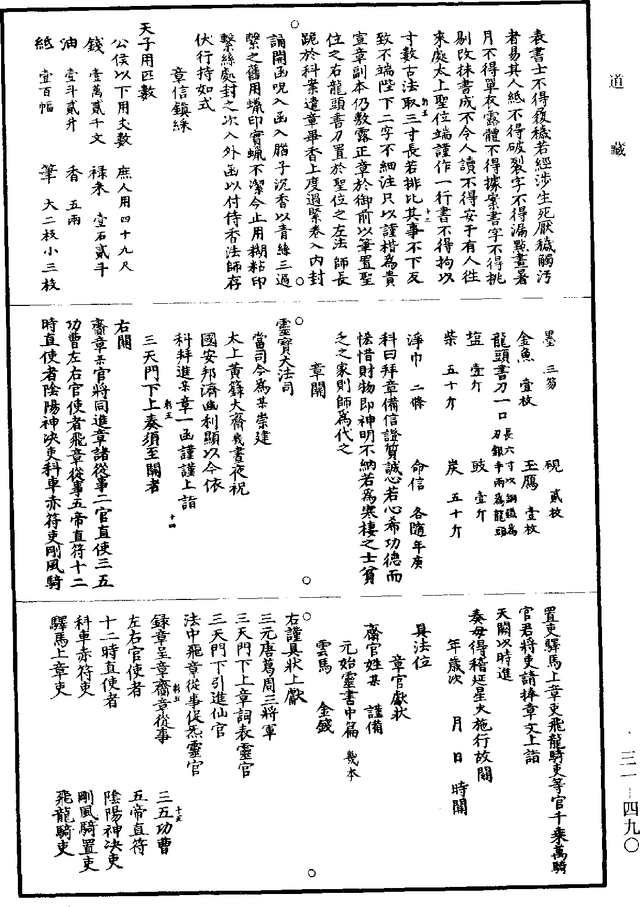 道藏
表書士不得履穢若經涉生死厭穢觸污
者易其人紙不得破裂字不得漏點晝暑
月不得單衣露體不得據案書字不得挑
剔改抹書成不令人讀不得安于有人往
來處太上聖位端謹作一行書不得拘以
寸數古法取三寸長若排比其事不下反
致不端陛下二字不細注只以謹楷爲貴
宣章副本仍敷露正章於御前以筆置聖
位之右龍頭書刀置於聖位之左法師長
跪於科案遣章畢香上度過緊卷入內封
誦開函呪入函入腦子沉香以青絲三過
繫之舊用蠟印實蠟不潔今止用糊粘印
繫絲處封之次入外函以付侍香法師存
伏行持如式
章信鎮綵
天子用疋數
公侯以下用丈數 庶人用四十九尺
錢 壹萬貳千文 祿米 壹石貳斗
油 壹斗貳升 香 五兩
紙 壹百幅 筆 大二枚小三枚
墨 三笏 硯 貳枚
金魚 壹枚 玉鴈 壹枚
龍頭書刀一口 長六寸以鋼鐵爲刀銀半兩爲龍頭
塩 壹斤 豉 壹斤
柴 五十斤 炭 五十斤
淨巾 二條 命信 各隨年庚
科曰拜章備信證質誠心若心希功德而
悋惜財物即神明不納若爲寒棲之士貧
乏之家則師爲代之
章關
靈寶大法司
當司今爲某崇建
太上黃籙大齋幾晝夜祝
國安邦濟幽利顯以今依
科拜進某章一函謹謹上詣
三天門下上奏須至關者
右關
齎章某官將同進章諸從事二官直使三五
功曹左右官使者飛章從事五帝直符十二
時直使者陰陽神决吏科車赤符吏剛風騎
置吏驛馬上章吏飛龍騎吏等官千乘萬騎
官君將吏請捧章文上詣
天闕以時進
奏毋得稽延星火施行故關
年歲次 月 日 時關
具法位
章官獻狀
齋官姓某 謹備
元始靈書中篇 幾本
雲馬 金錢
右謹具狀上獻
三元唐葛周三將軍
三天門下上章詞表靈官
三天門下引進仙官
法中飛章從事促炁靈官
錄章呈章齎章從事 三五功曹
左右官使者 五帝直符
十二時直使者 陰陽神决吏
科車赤符吏 剛風騎置吏
驛馬上章吏 飛龍騎吏
三一—四九〇